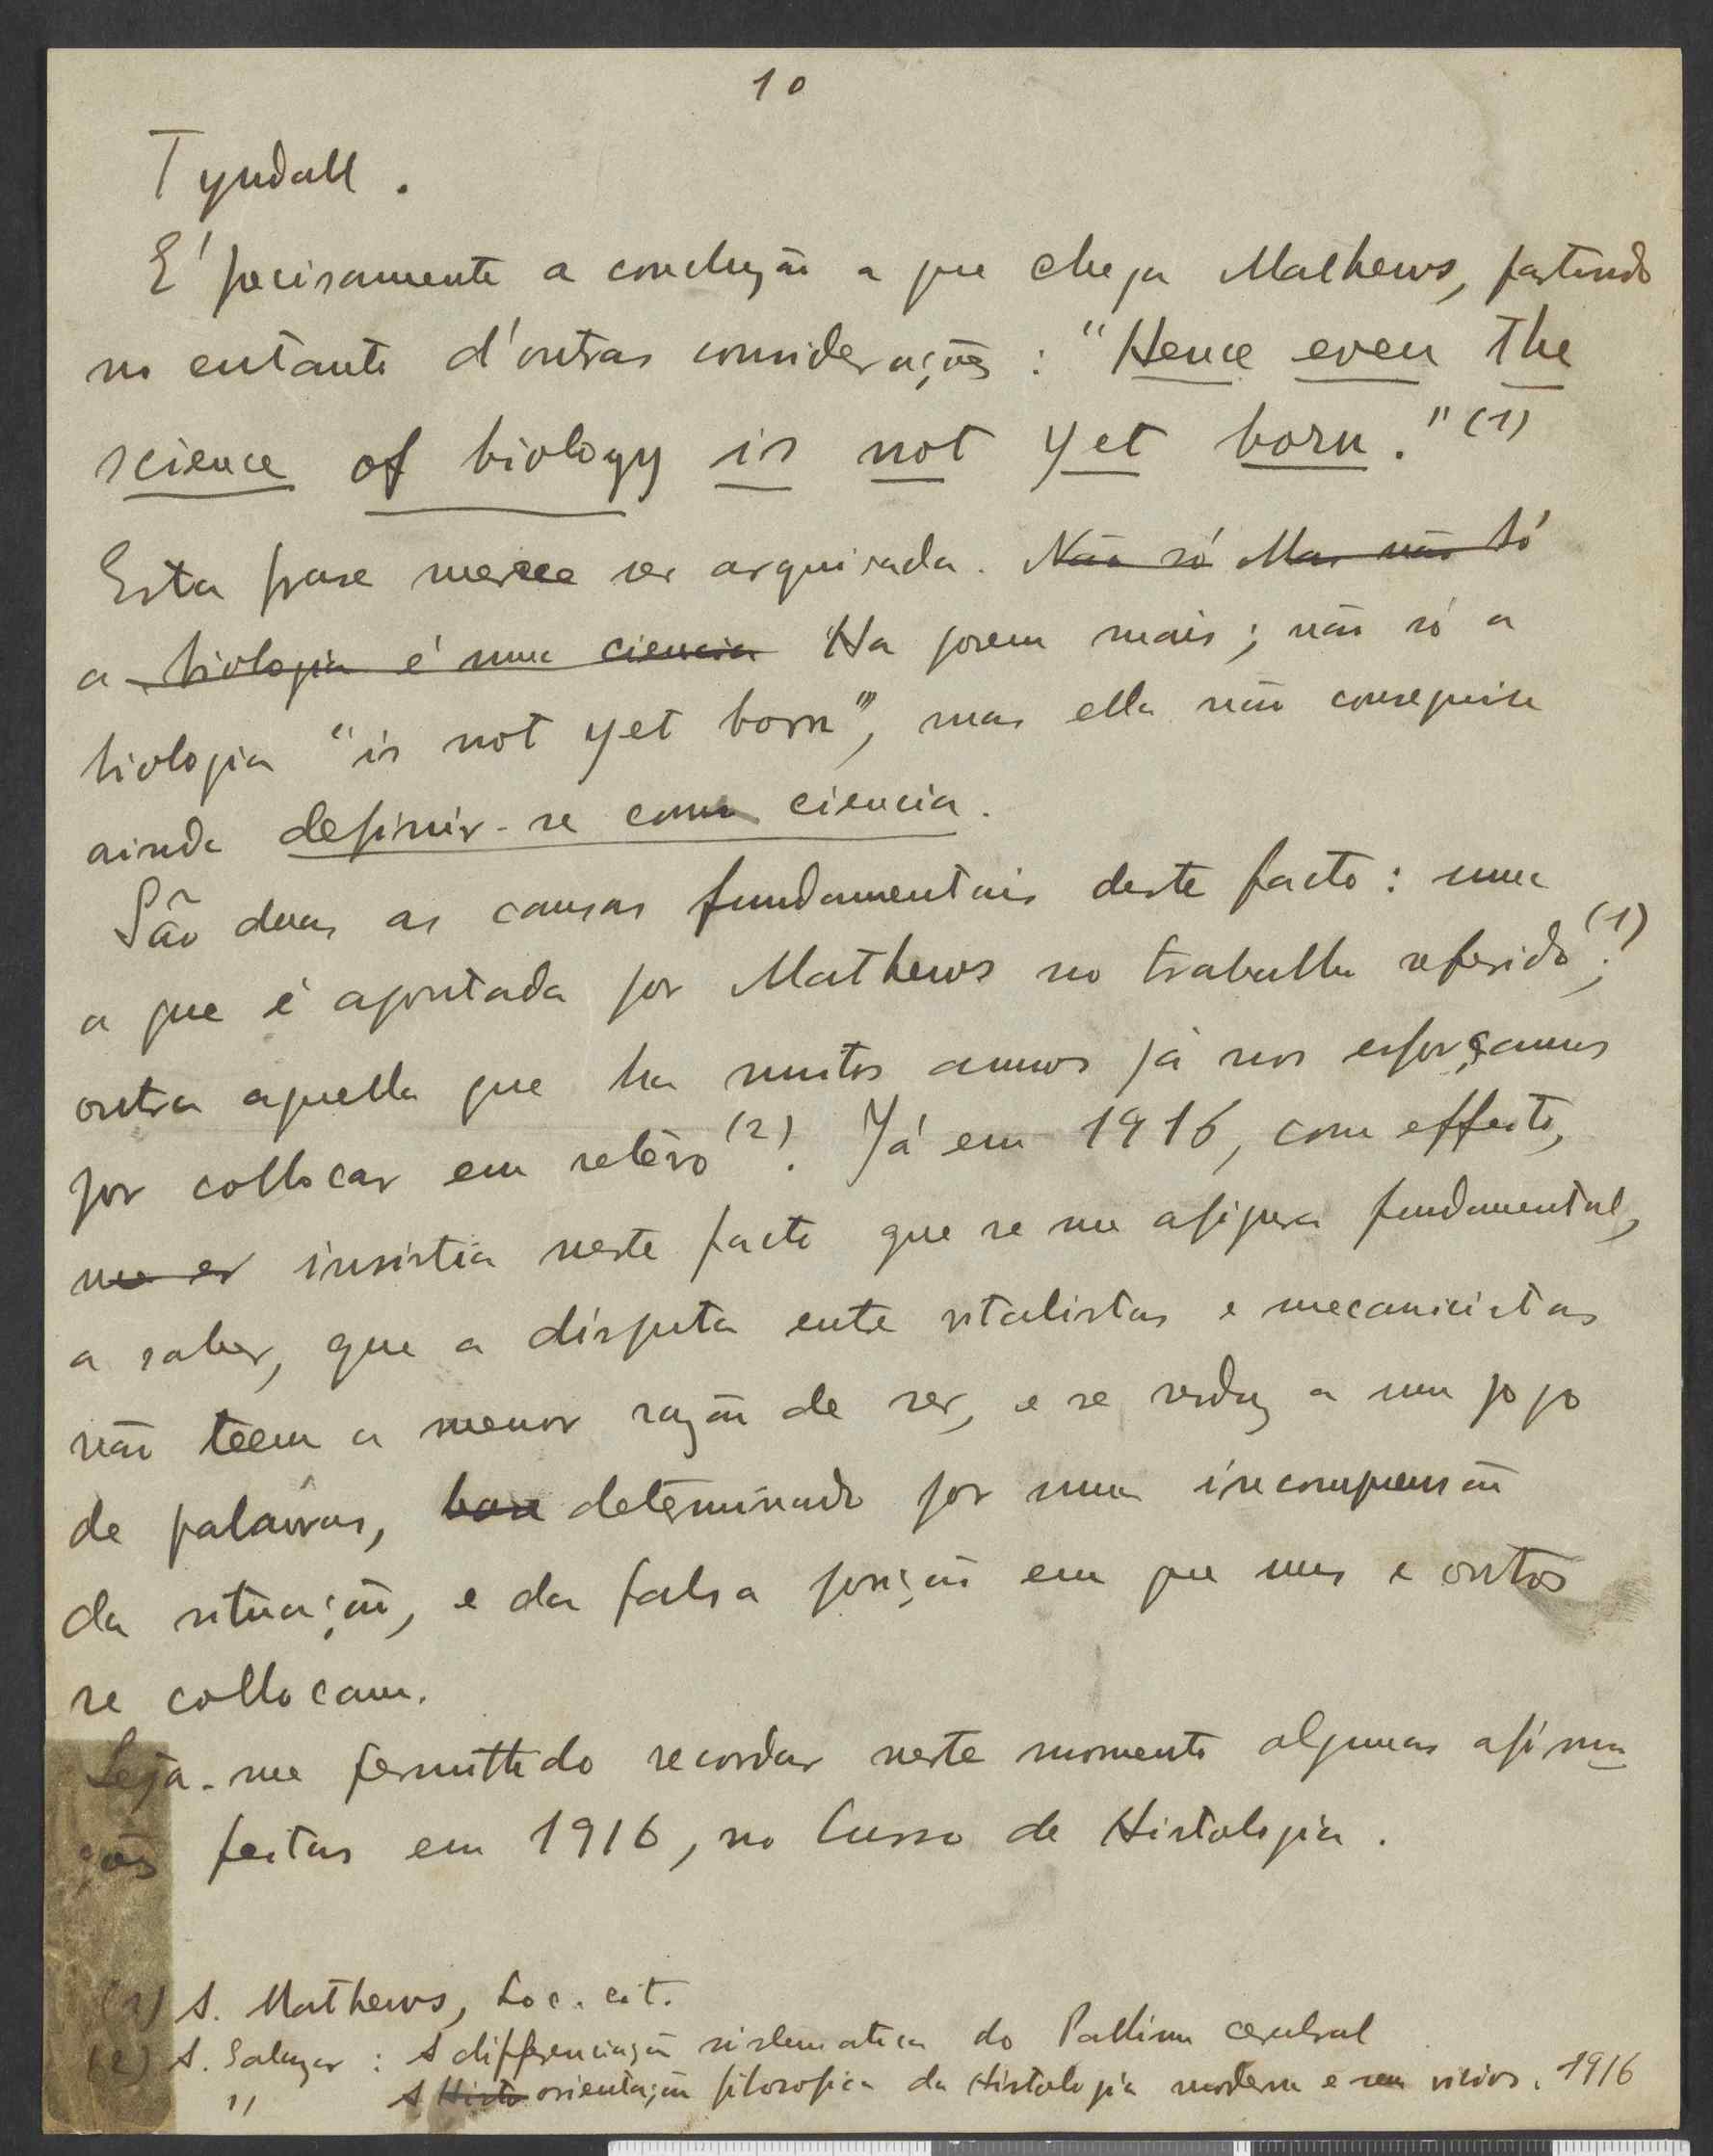 10
Tyndall.
E' precisamente a conclusão a que chega Mathews, partindo
no entanto d'outras considerações : "Hence even the
science of biology is not yet born." (1)
Esta frase merece ser arquivada. Não só Mas não só
a biologia é uma ciencia Ha porem mais ; não só a
biologia "is not yet born", mas ella não conseguiu
ainda definir-se como ciencia.
São duas as causas fundamentais deste facto : uma
a que é apontada por Mathews no trabalho referido (1);
outra aquella que ha muitos annos já nos esforçamos
por collocar em relêvo (2). Já em 1916, com effeito,
insistia neste facto que se me afigura fundamental,
a saber, que a disputa entre vitalistas e mecanicistas
não teem a menor razão de ser, e se reduz a um jogo
de palavras, determinado por uma incompreensão
da situação, e da falsa posição em que uns e outros
se collocam.
Seja-me permittido recordar neste momento algumas afirma
ções feitas em 1916, no Curso de Histologia.
(1) A. Mathews, Loc. cit.
(2) A. Salazar : A differenciação sistematica do Pallium cerebral
" A Histo orientação filosofica da Histologia moderna e seus vicios. 1916